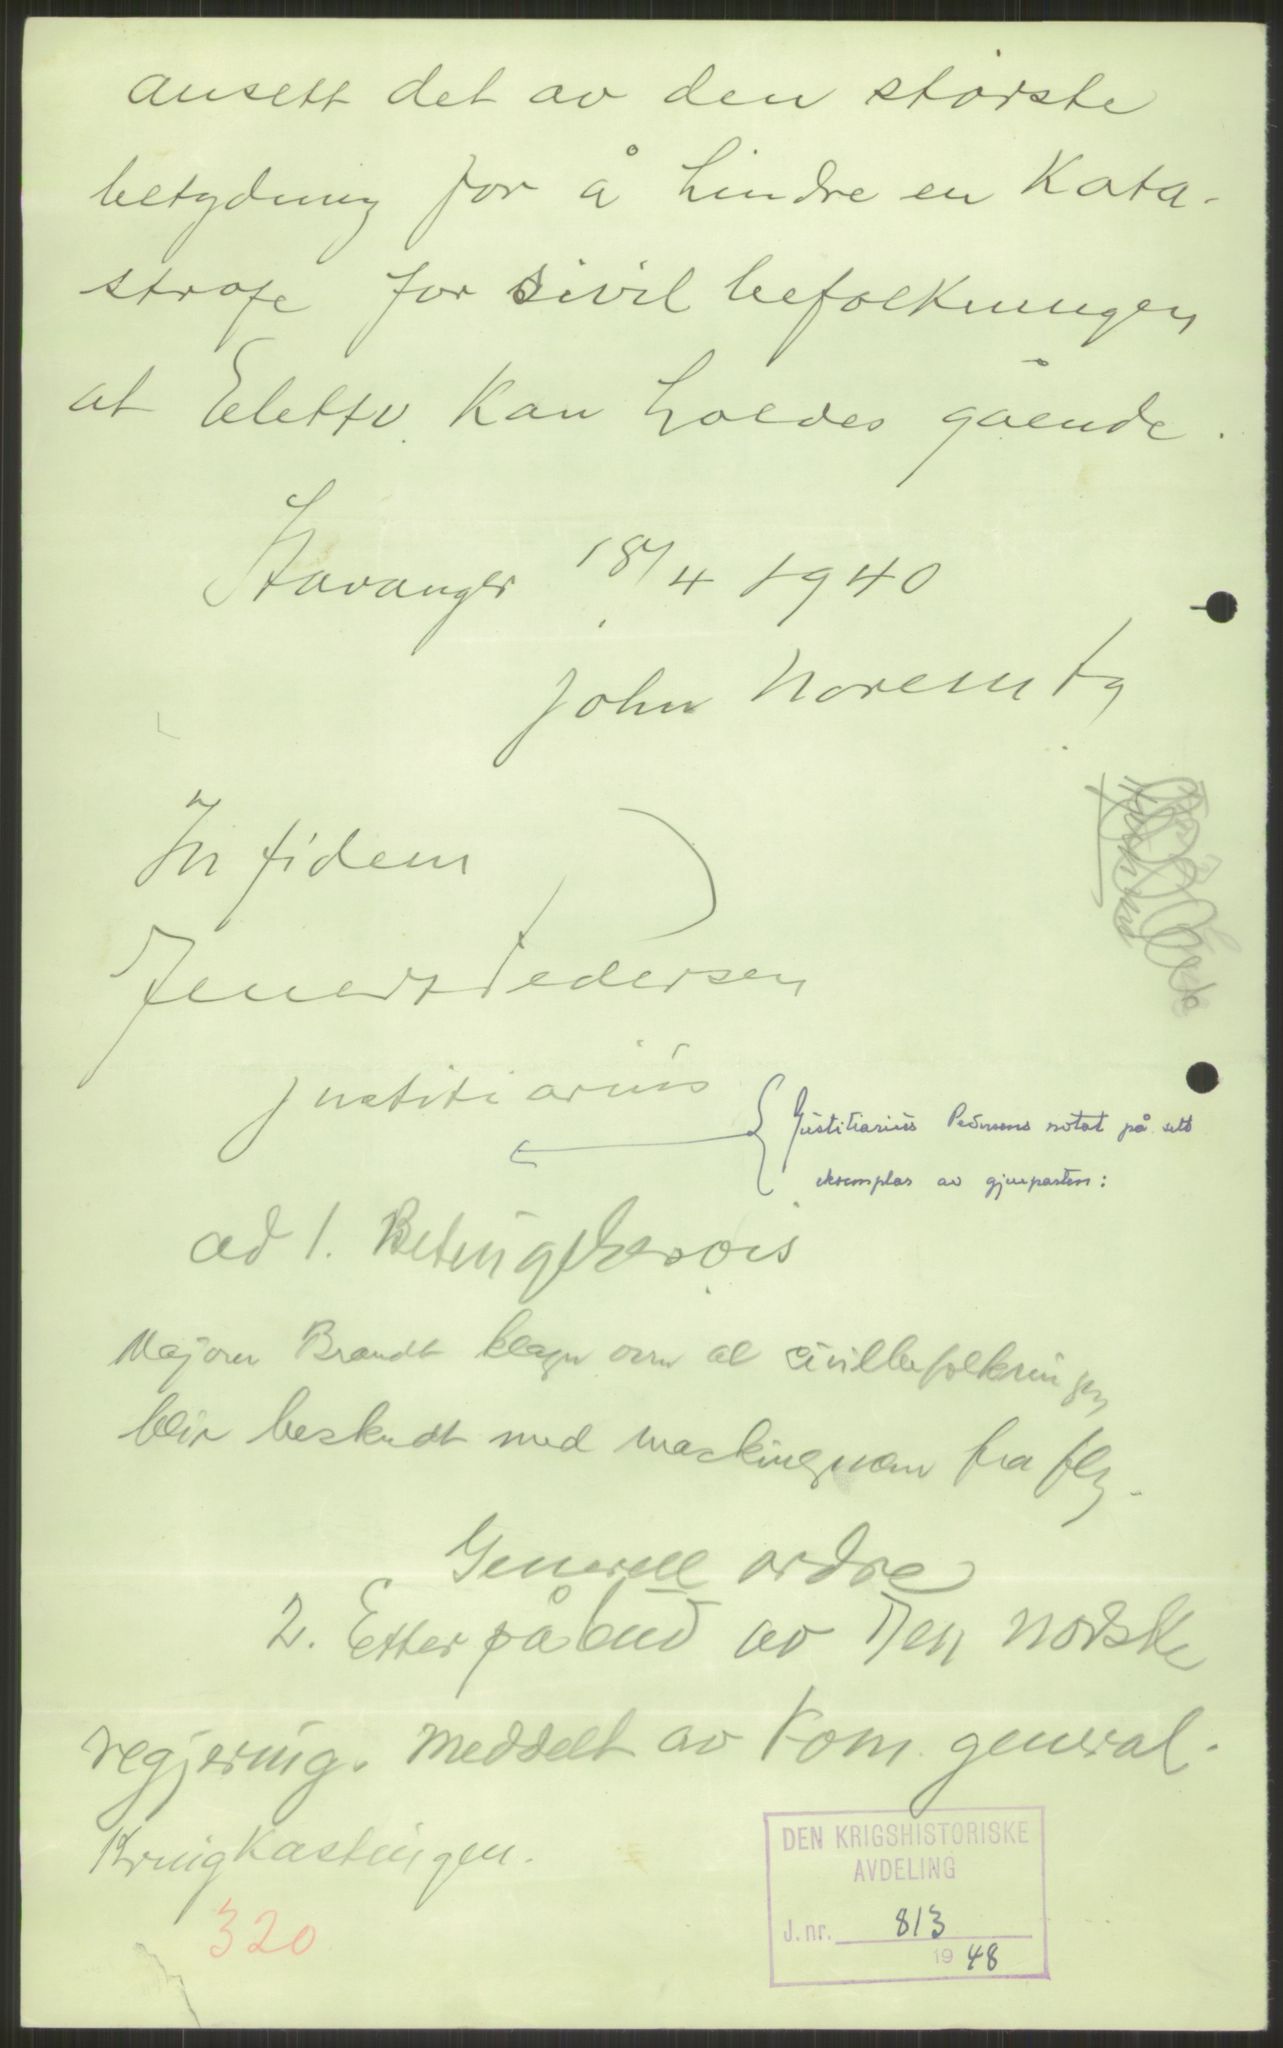 ansett det av den störste
betydning for å hindre en kata-
strofe for sivil befolkningen
at Elettv. kan holdes gående.
Stavanger 18/4 1940
John Norem
In fidem
Jens Pedersen
justitiarius
Justitiarius Pedersens notat på sitt
eksemplar av gjenparten:
ad 1. Betingelsesvis
Majoren Brandt klager over at civilbefolkningen
blir beskudt med maskingevær fra fly.
Generell ordre
2. Etter påbud av den norske
regjering. Meddelt av Kom. general.
Kringkastingen.
320
DEN KRIGSHISTORISKE
AVDELING
J. nr. 813
1948